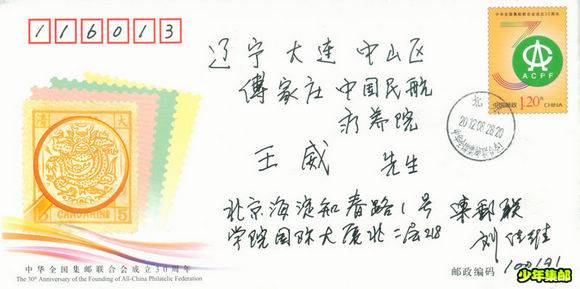 116013
中华全国集邮联合会成立30周年
30
ACPF
中国邮政 1.20元 CHINA
辽宁 大连 中山区
傅家庄 中国民航
疗养院
王威 先生
北京
大 清
CANDARINS
5 5
北京海淀知春路1号 集邮联
学院国际大厦北二层218 刘佳维
中华全国集邮联合会成立30周年
The 30th Anniversary of the Founding of All-China Philatelic Federation
邮政编码 100191
少年集邮